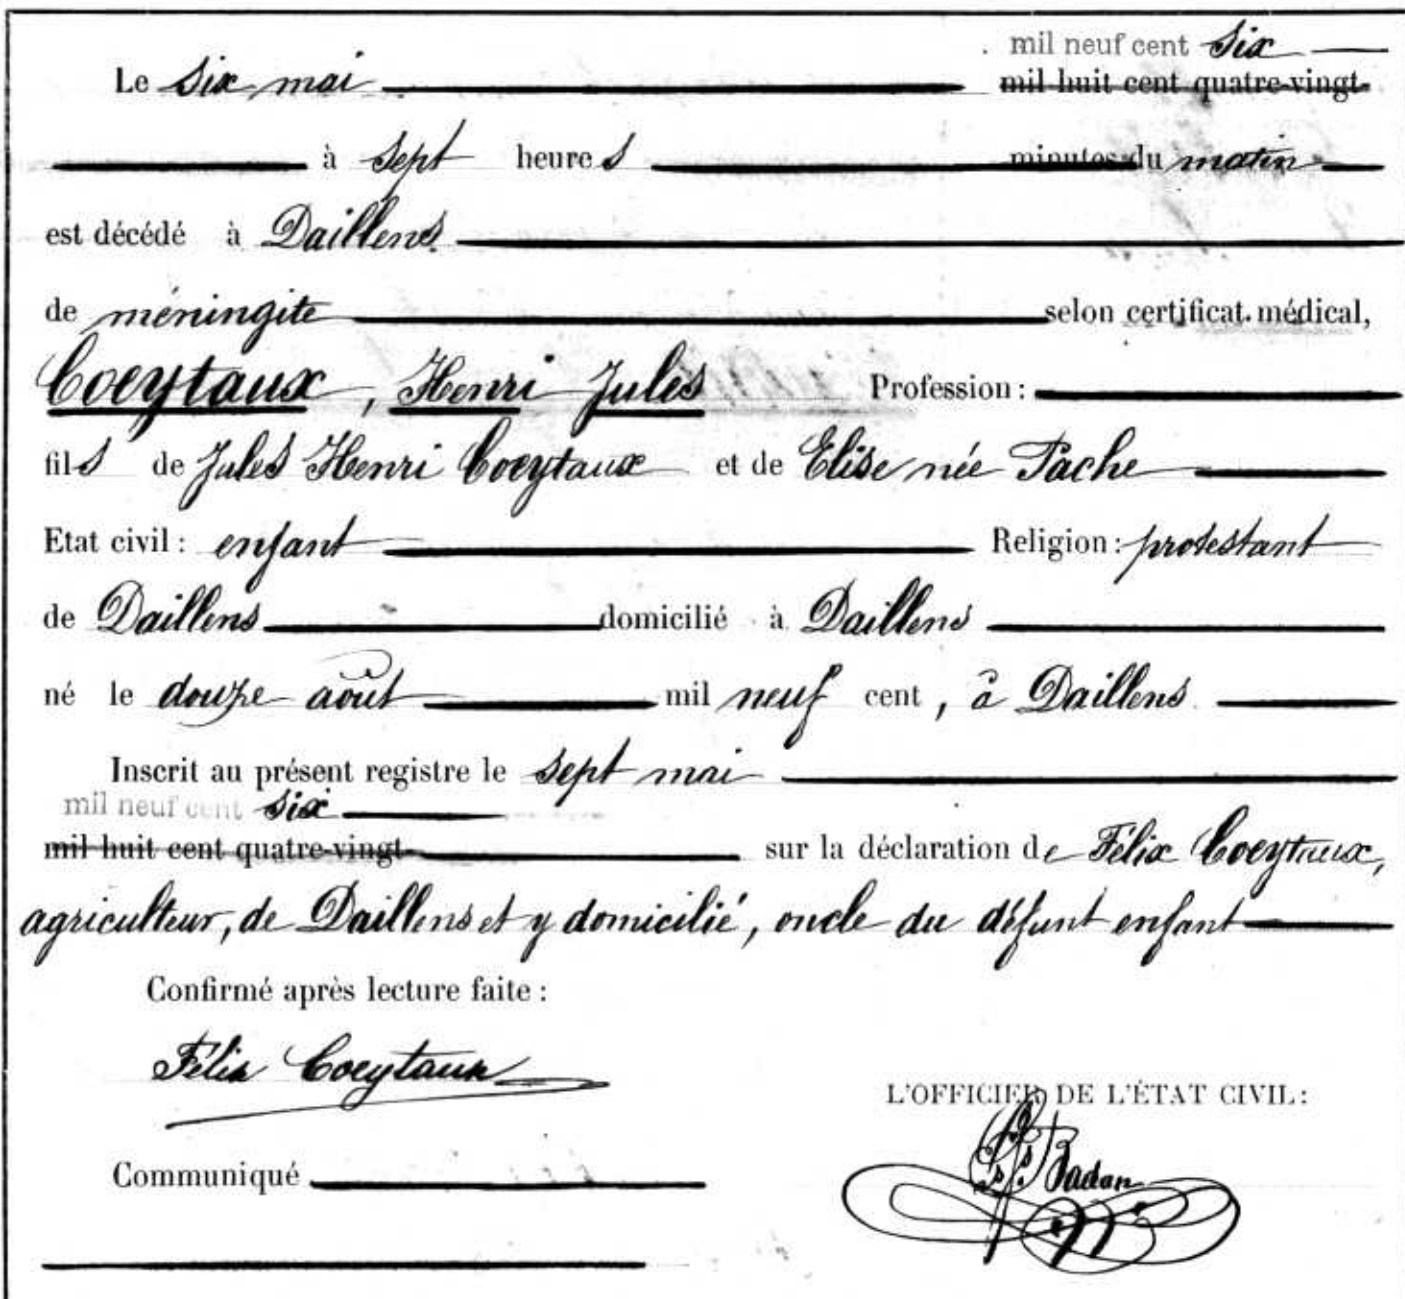 mil neuf cent six
Le six mai mil huit cent quatre-vingt-
à sept heures minutes du matin
est décédé à Daillens
de méningite selon certificat médical,
Coeytaux, Henri Jules Profession :
fils de Jules Henri Coeytaux et de Elise née Pache
Etat civil : enfant Religion : protestant
de Daillens domicilié à Daillens
né le douze août mil neuf cent, à Daillens
Inscrit au présent registre le sept mai
mil neuf cent six
mil huit cent quatre-vingt- sur la déclaration de Félix Coeytaux,
agriculteur, de Daillens et y domicilié, oncle du défunt enfant
Confirmé après lecture faite :
Félix Coeytaux
L'OFFICIER DE L'ÉTAT CIVIL :
Badan
Communiqué